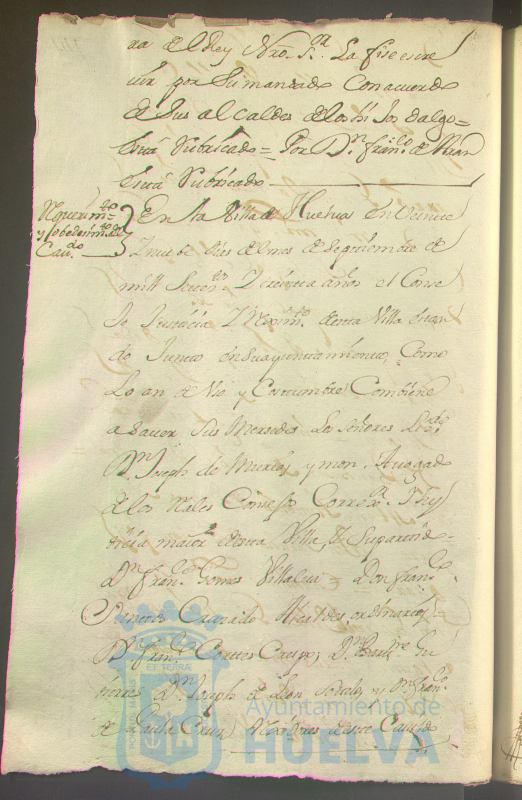 ra del Rey Nro. Sr. La fise escre
uir por Su mandado Con acuerdo
de Sus alcaldes de los hijos dalgo =
Está Rubricado = Por Dn. franco. de
Está Rubricado
Requerimto.
y obedesimto. del
Caudo.
En la Villa de Huelua En Veinte
Y nuebe dias del mes de Septiembre de
mill Setesos. Y treinta años el Conse
Jo Justicia Y Reximto. de esta Villa estan
do Junto en Su ayuntamiento, Como
Lo an de Vso y Costumbre Combiene
a Sauer Sus Mersedes Los Señores Lizdo.
Dn. Joseph de y mon. Auogado
de los Reales Consejos Correxor. Y Jus
ticia maior de esta Villa,
Dn. Franco. Gomes Villalua = Don Franco.
Quintado Alcaldes ordinarios =
Dn. Franco. Dn. Barme. Gu
tierres Dn. Joseph de Leon y Dn. Franco.
de Rexidores deeste Cauildo
Ayuntamiento de
HUELVA